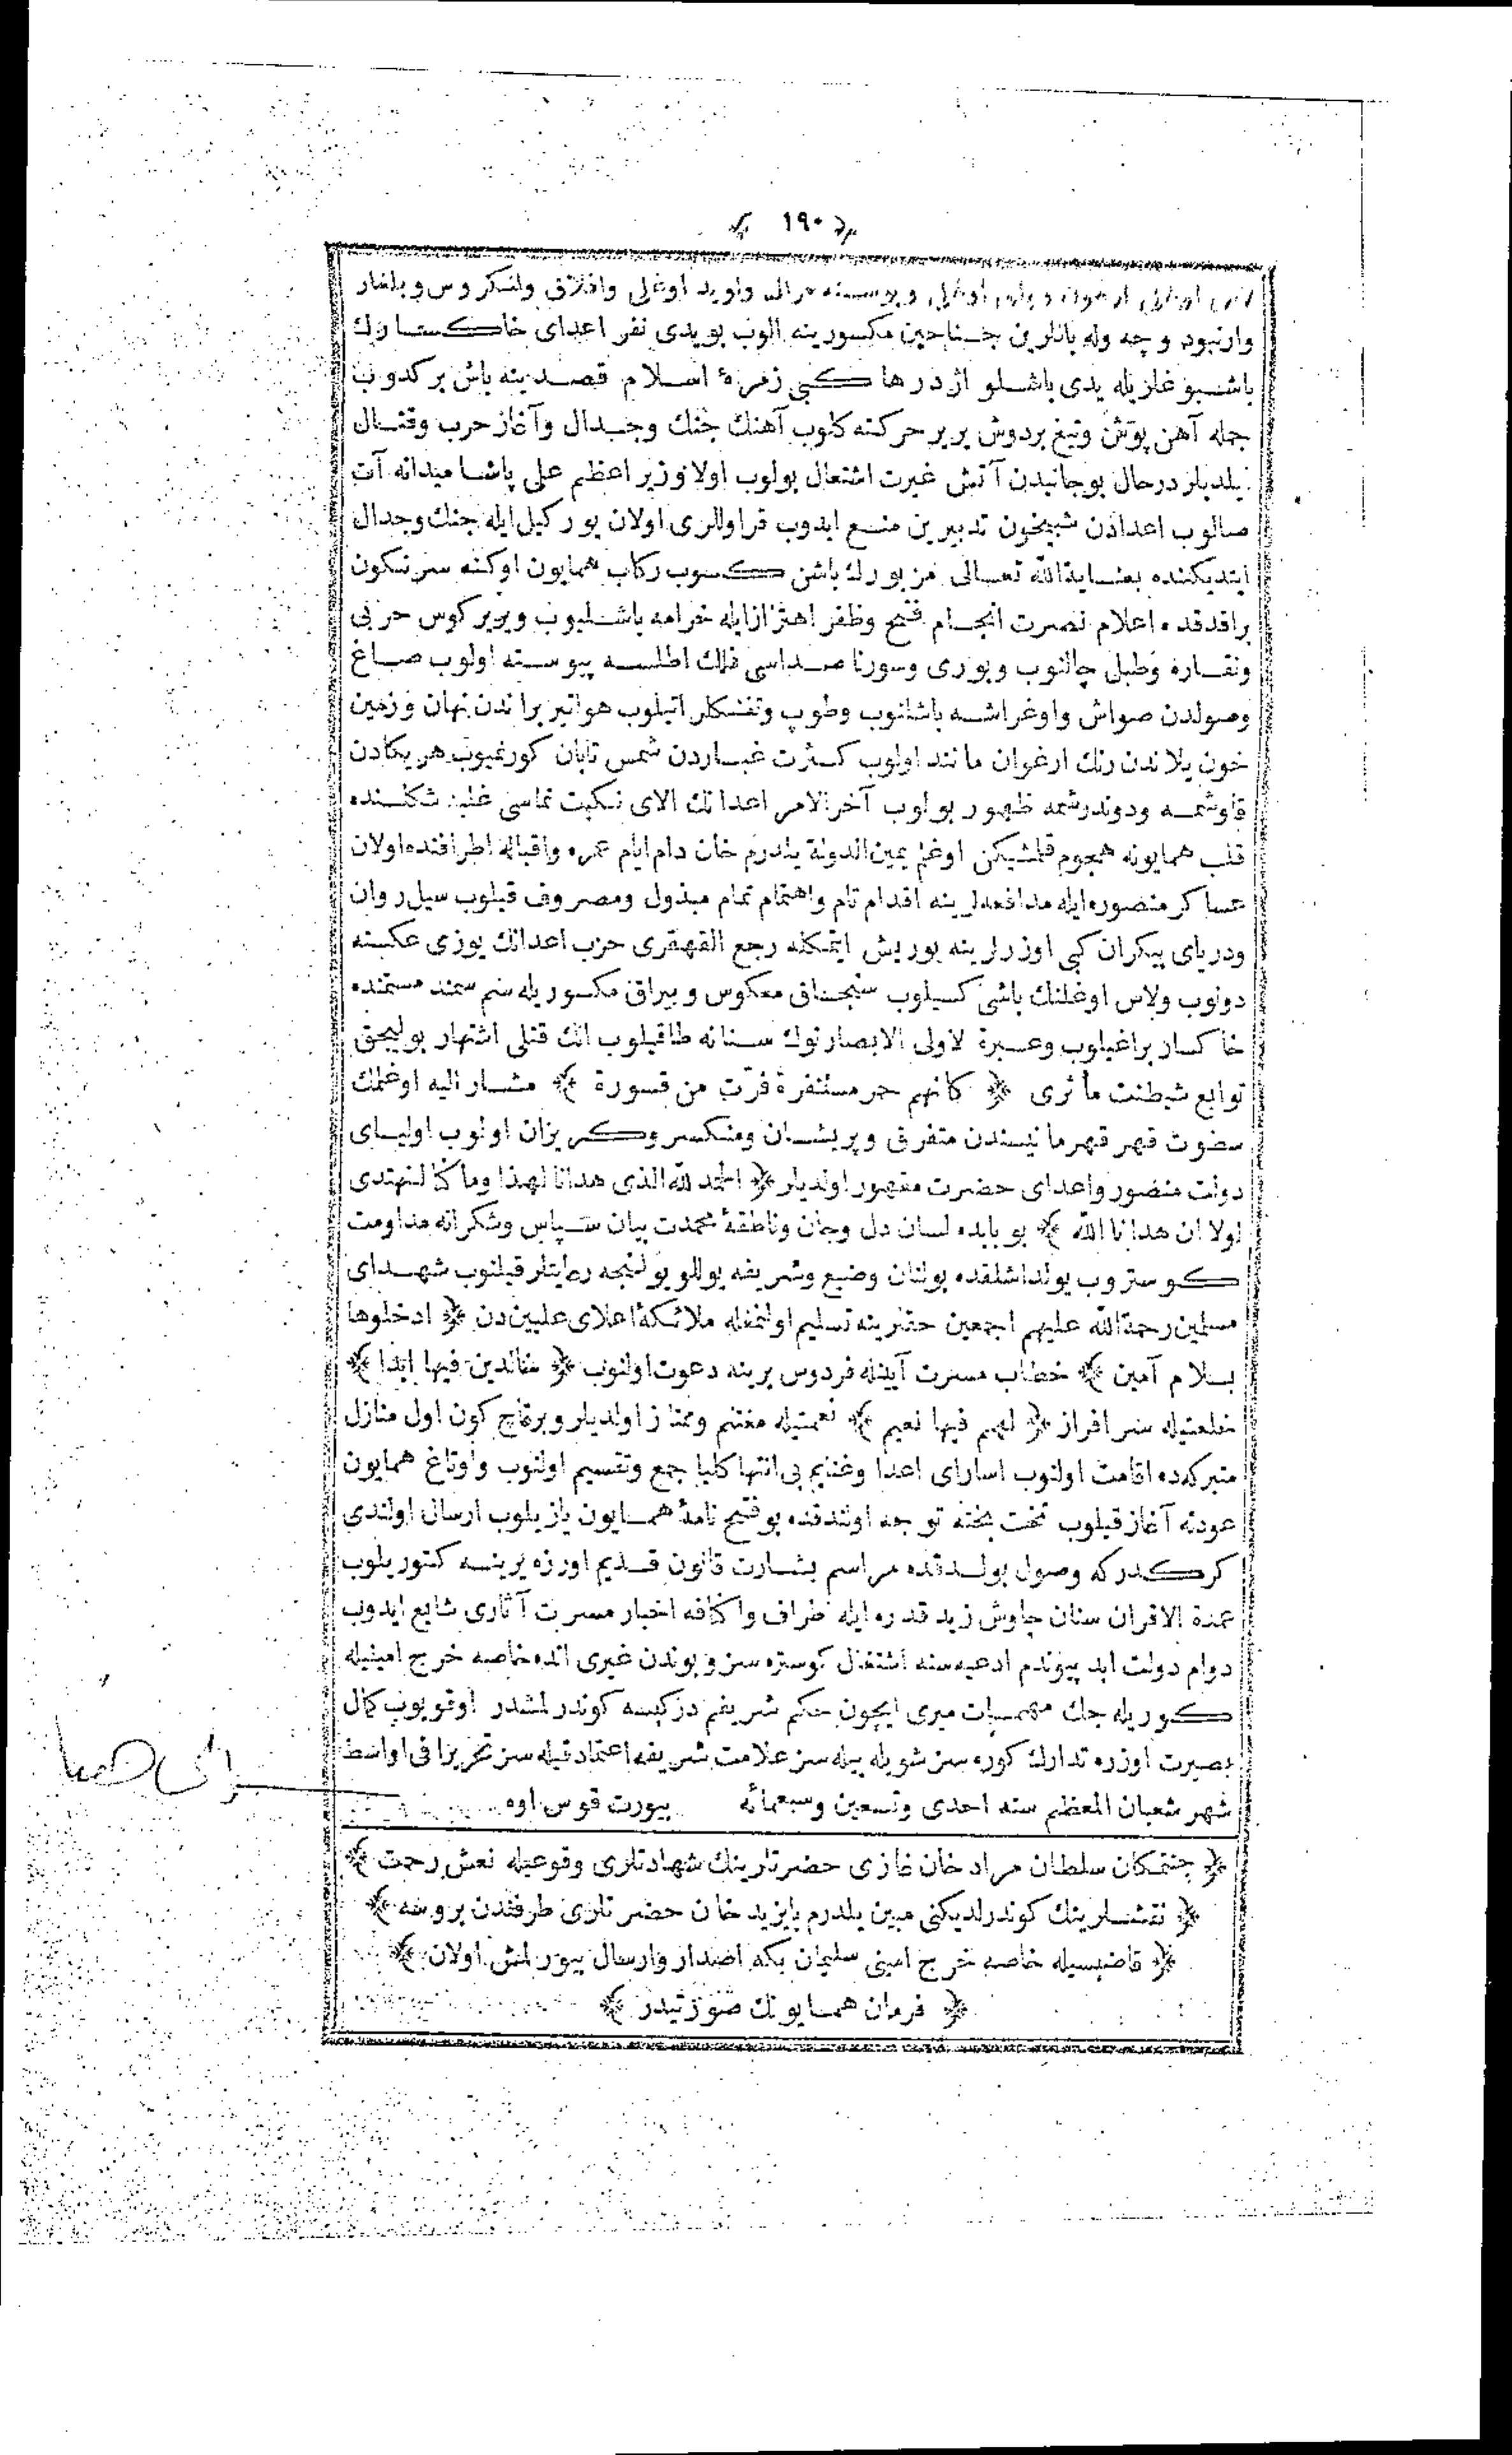 ﴿ ١٩٠ ﴾
لاس اوغلی واويد اوغلی وافلاق ولنكروس وبلغار
وارنبود وچه وله بانلرين جناحين مكسورينه الوب بو يدی نفر اعدای خاكسارك
باشبوغلريله يدی باشلو اژدرها كبی زمرۀ اسلام قصدينه باش بر كدوب
جمله آهن پوش وتيغ بردوش يرير حركته كلوب آهنك جنك وجدال وآغاز حرب وقتال
قيلديلر درحال بو جانبدن آتش غيرت اشتعال بولوب اولا وزير اعظم علی پاشا ميدانه آت
صالوب اعدادن شبيخون تدبيرين منع ايدوب قراوللری اولان يوركيل ايله جنك وجدال
ايتديكنده بعناية الله تعالی مزبورك باشن كسوب ركاب همايون اوكنه سرنكون
براقدقده اعلام نصرت انجام فتح وظفر اهتزاز ايله خرامه باشليوب ويرير كوس حربی
ونقاره وطبل چالنوب وبوری وسورنا صداسی فلك اطلسه پيوسته اولوب صاغ
وصولدن صواش واوغراشه باشلنوب وطوپ وتفنكلر اتيلوب هوا تير براندن نهان وزمين
خون يلاندن رنك ارغوان مانند اولوب كثرت غباردن شمس تابان كورنميوب هر يكادن
قاوشمه ودوندرشمه ظهور بولوب آخر الامر اعدانك الای نكبت نماسی غلبه شكلنده
قلب همايونه هجوم قلمشيكن اوغلم يمين الدولة يلدرم خان دام ايام عمره واقباله اطرافنده اولان
عساكر منصوره ايله مدافعه لرينه اقدام تام واهتمام تمام مبذول ومصروف قيلوب سيل روان
ودريای بيكران كبی اوزرلرينه يوريش ايتمكله رجع القهقری حزب اعدانك يوزی عكسنه
دونوب ولاس اوغلنك باشی كسيلوب سنجاق معكوس وبيراق مكسوريله سم سمند مستمنده
خاكسار براغيلوب وعبرة لاولی الابصار نوك سنانه طاقيلوب انك قتلی اشتهار بوليجق
توابع شيطنت مأثری ﴿ كانهم حمر مستنفرة فرّت من قسورة ﴾ مشار اليه اوغلمك
سطوت قهر قهرمانيسندن متفرق وپريشان ومنكسر وكريزان اولوب اوليای
دولت منصور واعدای حضرت مقهور اولديلر ﴿ الحمد لله الذی هدانا لهذا وما كنا لنهتدی
لولا ان هدانا الله ﴾ بو بابده لسان دل وجان وناطقۀ محمدت بيان سپاس وشكرانه مداومت
كوستروب يولداشلقده بولنان وضيع وشريفه يوللو يولنجه رعايتلر قيلنوب شهدای
مسلمين رحمة الله عليهم اجمعين حقلرينه تسليم اولنمغله ملائكۀ اعلای عليين دن ﴿ ادخلوها
بسلام آمين ﴾ خطاب مسرت آيينله فردوس برينه دعوت اولنوب ﴿ خالدين فيها ابدا ﴾
خلعتيله سر افراز ﴿ لهم فيها نعيم ﴾ نعمتيله مغتنم وممتاز اولديلر وبرقاچ كون اول منازل
متبركه ده اقامت اولنوب اسارای اعدا وغنايم بی انتها كليا جمع وتقسيم اولنوب واوتاغ همايون
عودته آغاز قيلوب تخت بخته توجه اولندقده بو فتح نامۀ همايون يازيلوب ارسال اولندی
كركدر كه وصول بولدقده مراسم بشارت قانون قديم اوزره يرينه كتوريلوب
عمدة الاقران سنان چاوش زيد قدره ايله اطراف واكنافه اخبار مسرت آثاری شايع ايدوب
دوام دولت ابد پيوندم ادعيه سنه اشتغال كوستره سز وبوندن غيری انده خاصه خرج امينيله
كوريله جك مهمات ميری ايچون حكم شريفم دركيسه كوندرلمشدر اوقويوب كمال
بصيرت اوزره تدارك كوره سز شويله بيله سز علامت شريفه اعتماد قيله سز تحريرا فی اواسط
شهر شعبان المعظم سنه احدی وتسعين وسبعمائه بيورت قوس اوه
﴿ جنتمكان سلطان مراد خان غازی حضرتلرينك شهادتلری وقوعيله نعش رحمت ﴾
﴿ نقشلرينك كوندرلديكنی مبين يلدرم بايزيد خان حضرتلری طرفندن بروسه ﴾
﴿ قاضيسيله خاصه خرج امينی سليمان بكه اصدار وارسال بيورلمش اولان ﴾
﴿ فرمان همايونك صورتيدر ﴾